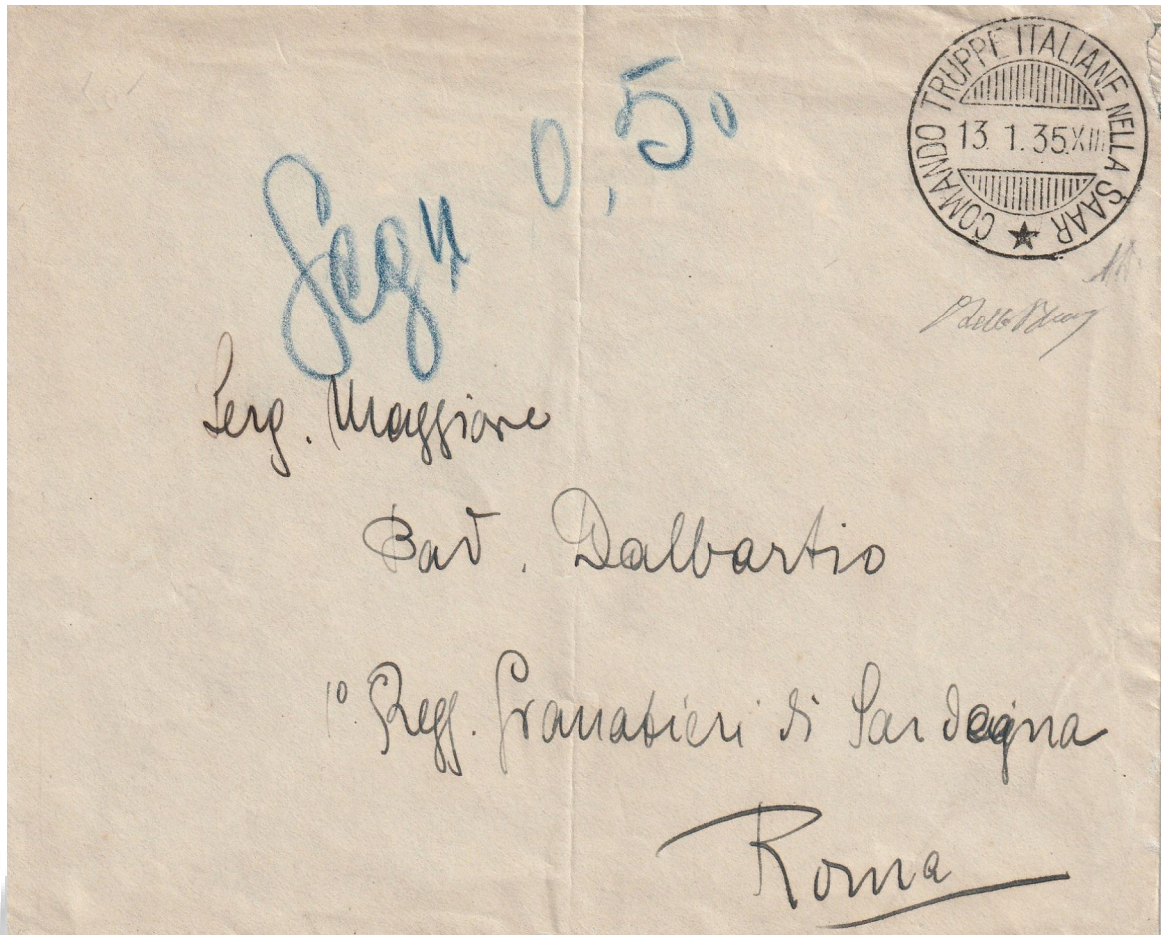 COMANDO TRUPPE ITALIANE NELLA SAAR
13. 1. 35.XIII
0,50
Segn
Serg. Maggiore
Bav. Dalbartio
1º Regg. Granatieri di Sardegna
Roma